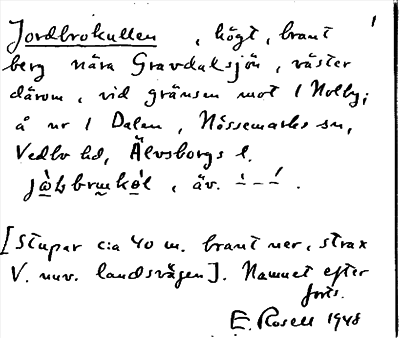 1
Jordbrokullen, högt, brant
berg nära Gravdalsjön, väster
därom, vid gränsen mot 1 Nolby;
å nr 1 Dalen, Nössemarks sn,
Vedbo hd, Älvsborgs l.
, äv.
[Stupar c:a 40 m. brant ner, strax
V. nuv. landsvägen]. Namnet efter
forts.
E. Rosell 1948